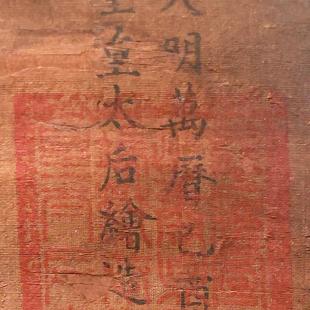 大明萬曆己酉
聖皇太后繪造